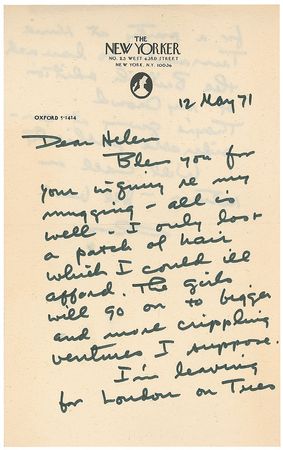 THE
NEW YORKER
NO. 25 WEST 43RD STREET
NEW YORK, N.Y. 10036
OXFORD 5-1414
12 May 71
Dear Helen
Bless you for
your inquiry re my
mugging – all is
well. I only lost
a patch of hair
which I could ill
afford. The girls
will go on to bigger
and more crippling
ventures I suppose.
I'm leaving
for London on Tues